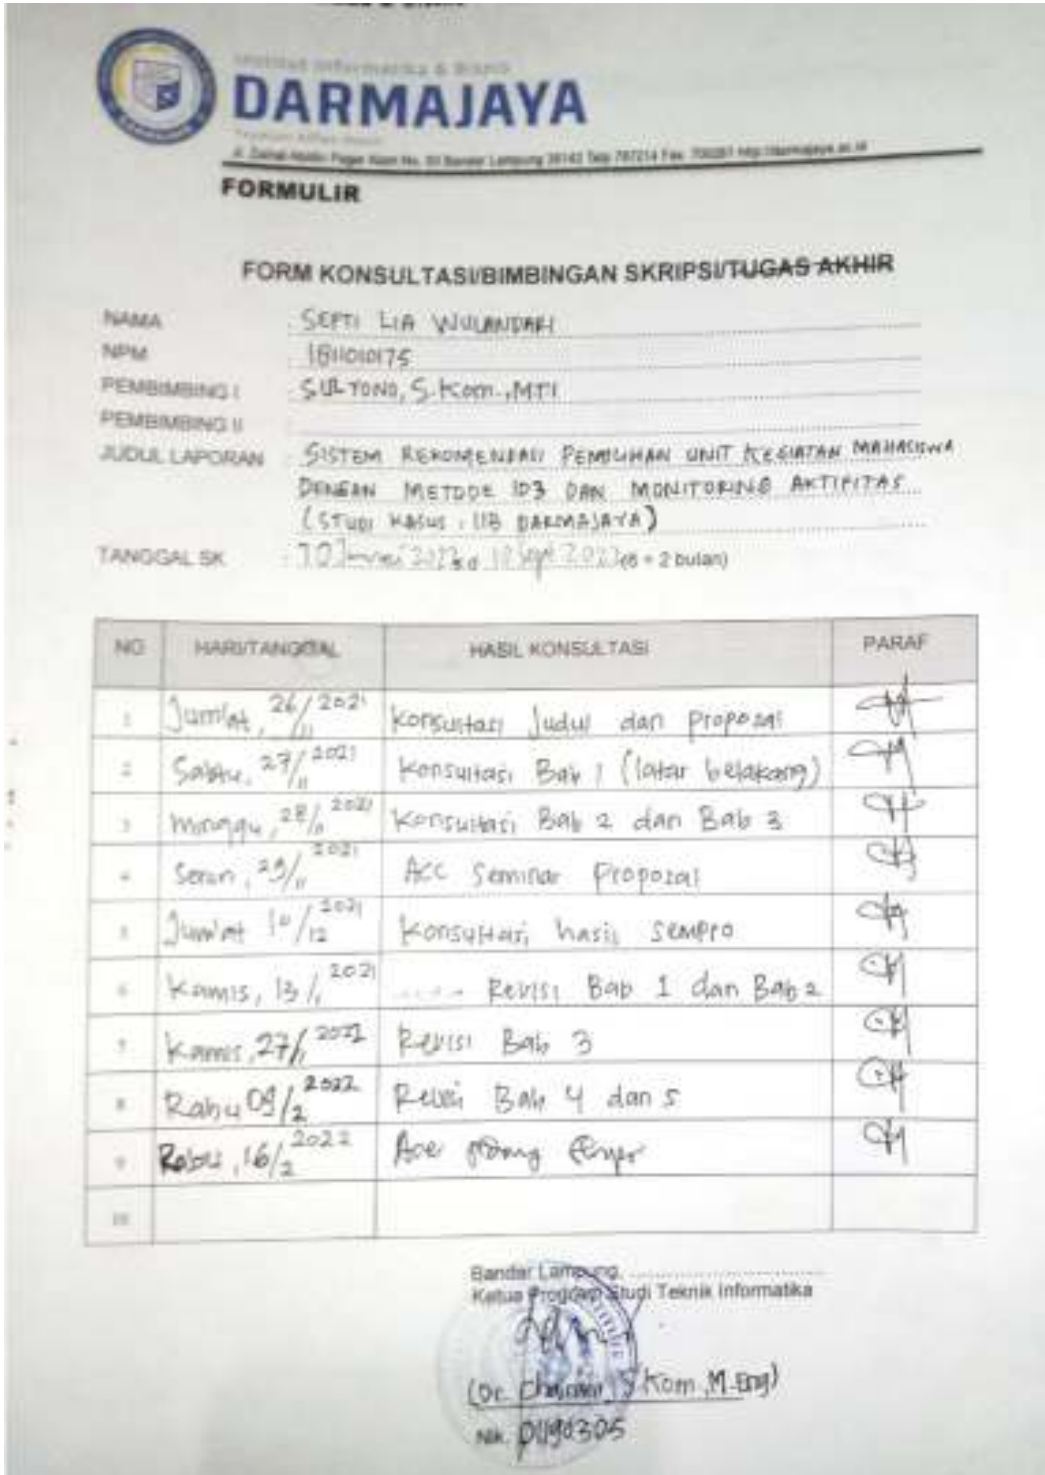 Institut Informatika & Bisnis
DARMAJAYA
Yayasan Alfian Husin
Jl. Zainal Abidin Pagar Alam No. 93 Bandar Lampung 35142 Telp 787214 Fax. 700261 http://darmajaya.ac.id
FORMULIR
FORM KONSULTASI/BIMBINGAN SKRIPSI/TUGAS AKHIR
NAMA : SEPTI LIA WULANDARI
NPM : 1811010175
PEMBIMBING I : SULYONO, S.Kom., MTI
PEMBIMBING II :
JUDUL LAPORAN : SISTEM REKOMENDASI PEMILIHAN UNIT KEGIATAN MAHASISWA
DENGAN METODE ID3 DAN MONITORING AKTIFITAS
(STUDI KASUS : IIB DARMAJAYA)
TANGGAL SK : s.d (6 + 2 bulan)
NO HARI/TANGGAL HASIL KONSULTASI PARAF
1 Jum'at, 26/11 2021 Konsultasi Judul dan Proposal
2 Sabtu, 27/11 2021 Konsultasi Bab 1 (latar belakang)
3 Minggu, 28/11 2021 Konsultasi Bab 2 dan Bab 3
4 Senin, 29/11 2021 Acc Seminar Proposal
5 Jum'at 10/12 2021 Konsultasi hasil sempro
6 Kamis, 13/1 2021 ..... Revisi Bab 1 dan Bab 2
7 Kamis, 27/1 2022 Revisi Bab 3
8 Rabu 09/2 2022 Revisi Bab 4 dan 5
9 Rabu, 16/2 2022 Acc
10
Bandar Lampung, ..............................
Ketua Program Studi Teknik Informatika
(Dr. S.Kom., M.Eng)
Nik. 01190305